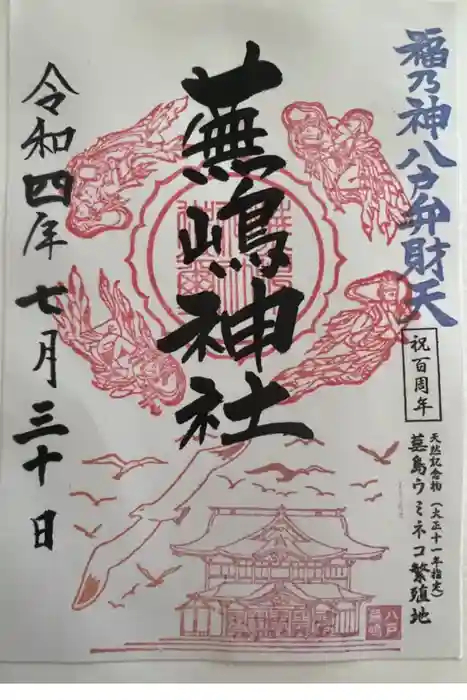 福乃神八戸弁財天
祝百周年
天然記念物(大正十一年指定)
蕪島ウミネコ繁殖地
蕪嶋神社
令和四年七月三十日
八戸
蕪嶋